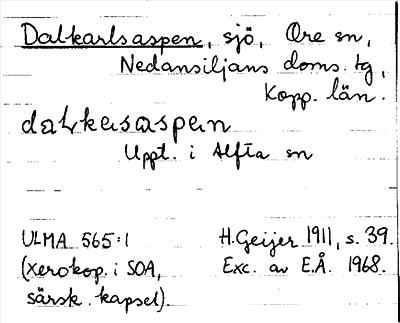 Dalkarlsaspen, sjö, Ore sn,
Nedansiljans doms. tg,
Kopp. län.
daɫkasaspən
Uppt. i Alfta sn
ULMA 565:1 H. Geijer 1911, s. 39.
(xerokop. i SOA, Exc. av E.Å. 1968.
särsk. kapsel).